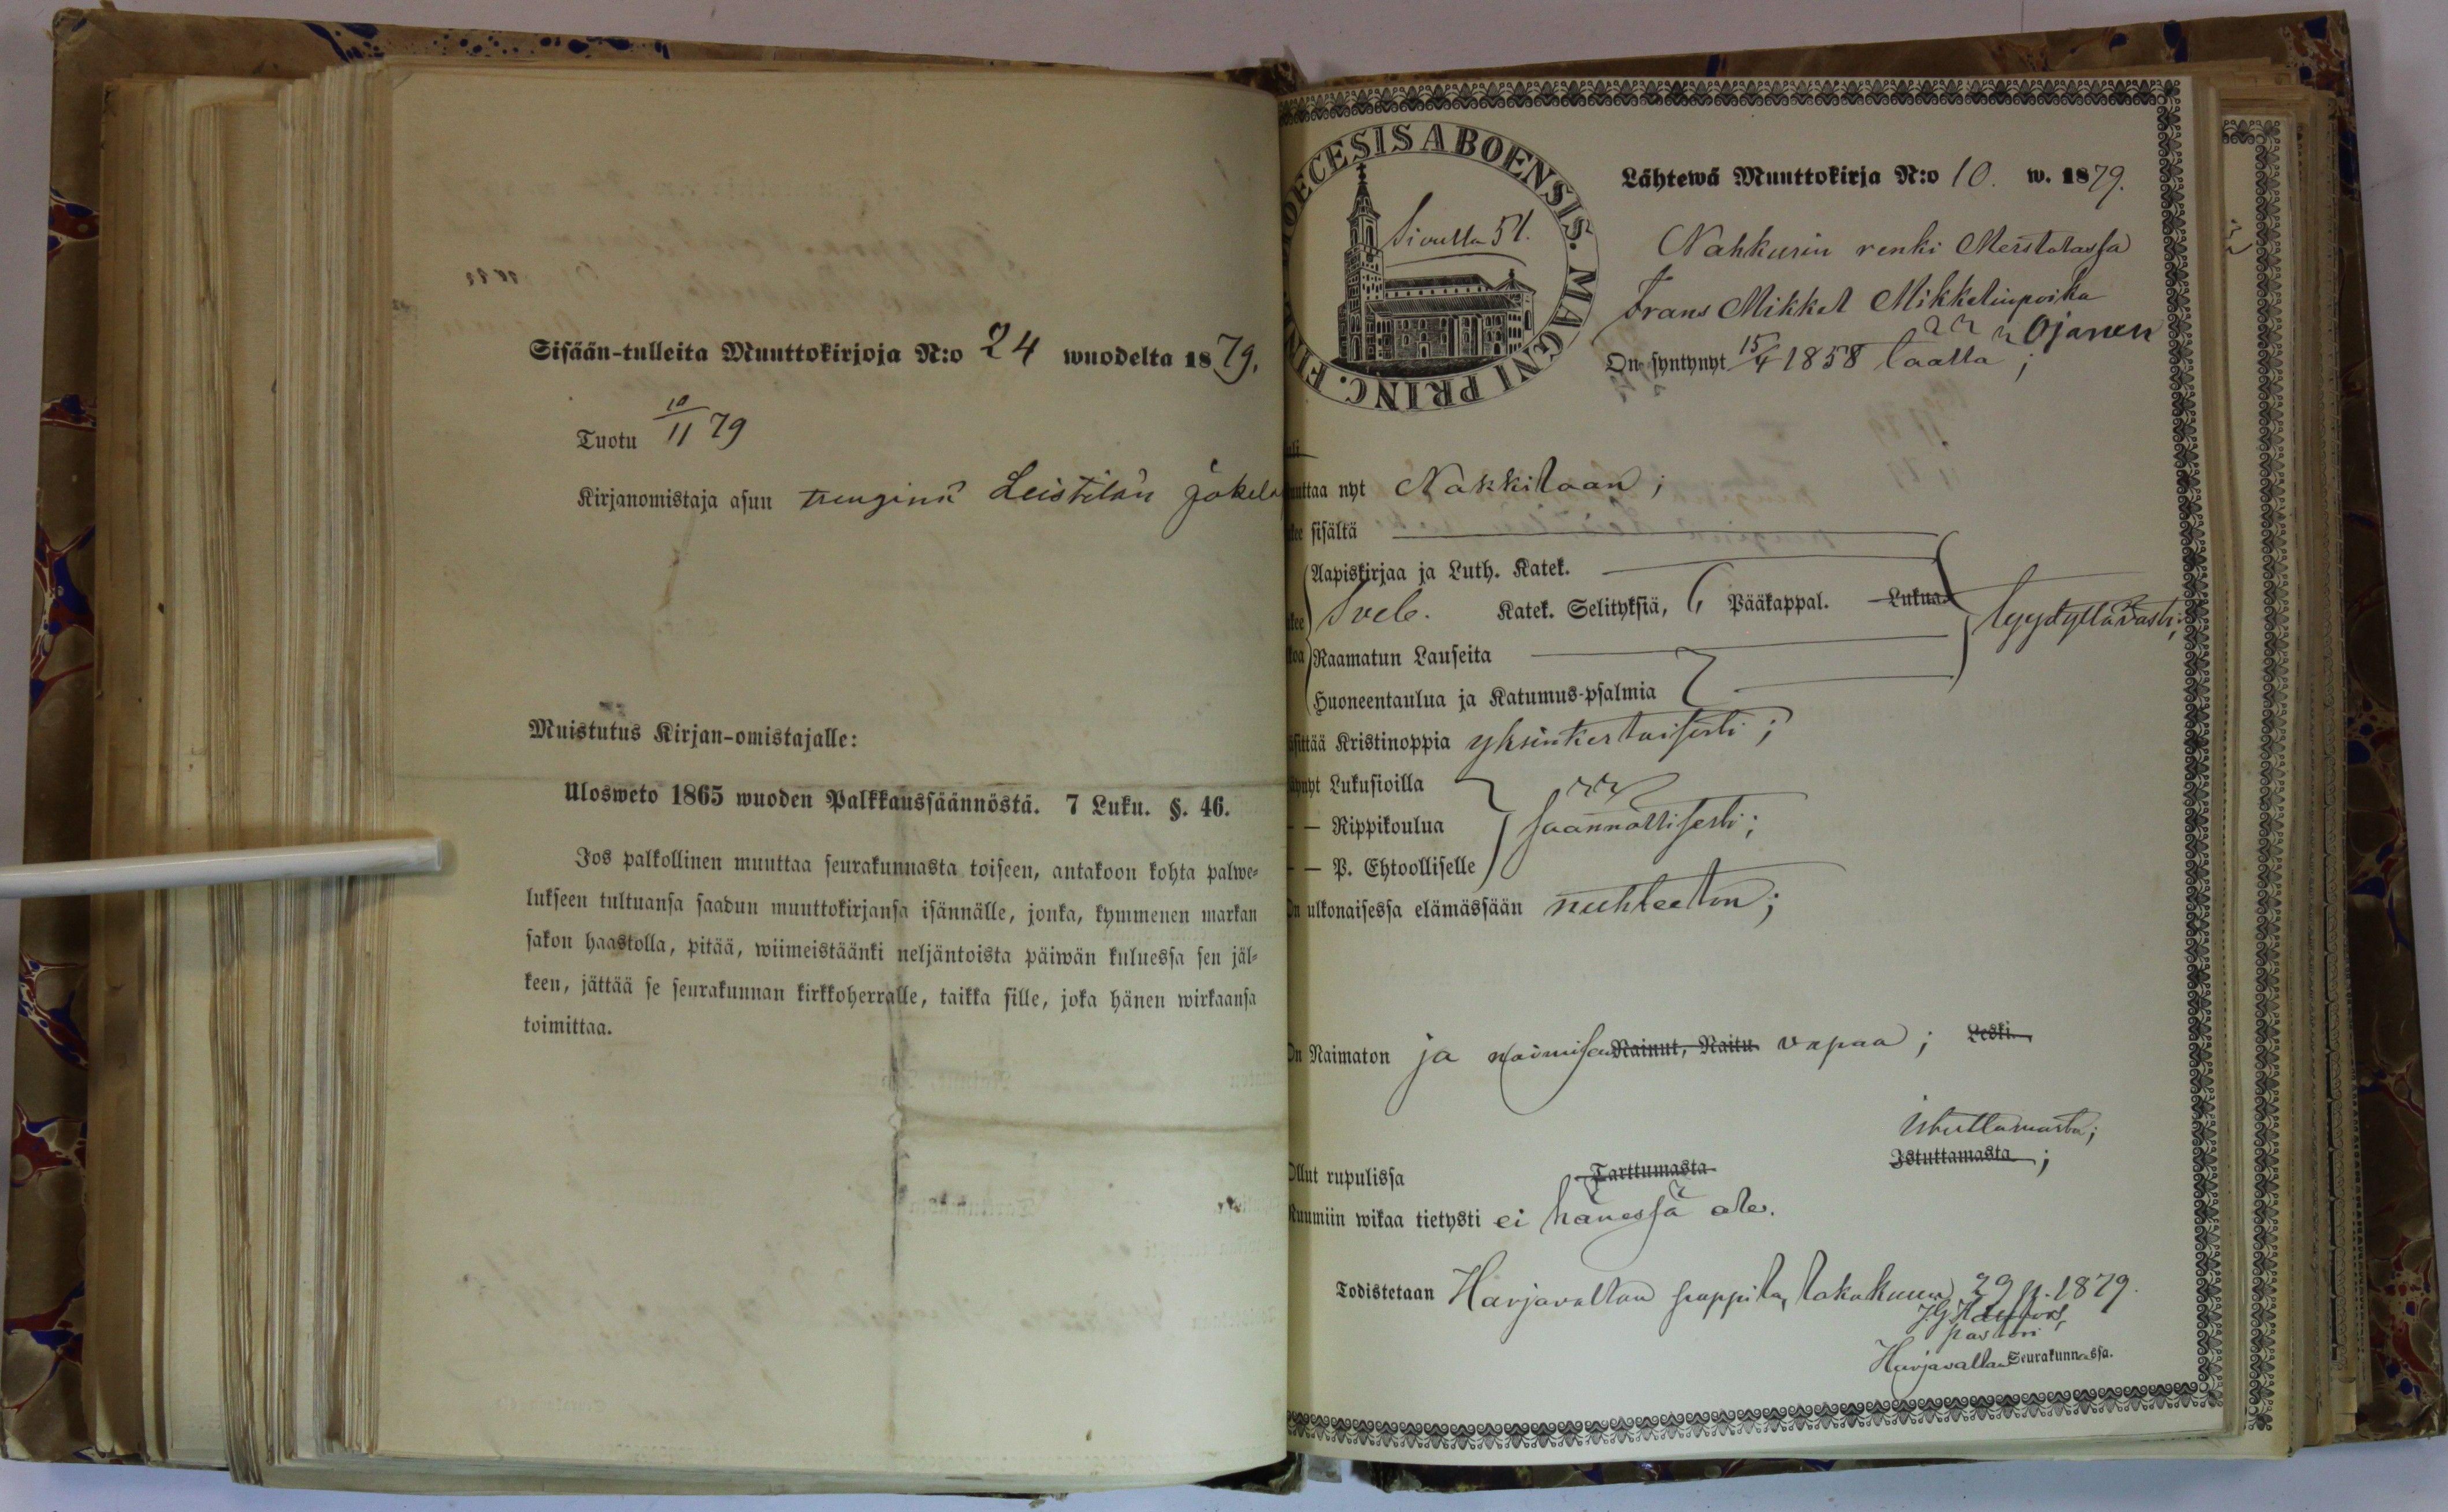 Sisään-tulleita Muuttokirjoja N:o 24 wuodelta 1879.
Tuotu 10/11 79
Kirjanomistaja asuu renginä Leistilän Jokela
Muistutus Kirjan-omistajalle:
Ulosweto 1865 wuoden Palkkaussäännöstä. 7 Luku. §. 46.
Jos palkollinen muuttaa seurakunnasta toiseen, antakoon kohta palwe=
lukseen tultuansa saadun muuttokirjansa isännälle, jonka, kymmenen markan
sakon haastolla, pitää, wiimeistäänki neljäntoista päiwän kuluessa sen jäl=
keen, jättää se seurakunnan kirkkoherralle, taikka sille, joka hänen wirkaansa
toimittaa.
OECESIS ABOENSIS. MAGNI PRINC. FIN
Sivulla 51.
Lähtewä Muuttokirja N:o 10. w. 1879.
Nahkurin renki Merstolassa
Frans Mikkel Mikkelinpoika
Ojanen
On syntynyt 15/4 1858 täällä;
uuttaa nyt Nakkilaan;
kee sisältä
Aapiskirjaa ja Luth. Katek.
Sveb. Katek. Selityksiä, 6 Pääkappal. Lukua
tyydyttävästi;
Raamatun Lauseita
Huoneentaulua ja Katumus-psalmia
sittää Kristinoppia yksinkertaisesti;
ynyt Lukusioilla
— — Rippikoulua säännöllisesti;
— — P. Ehtoolliselle
On ulkonaisessa elämässään nuhteeton;
On Naimaton ja naimisen Nainut, Naitu vapaa; Leski
istuttamasta;
Ollut rupulissa Tarttumasta Istuttamasta;
Ruumiin wikaa tietysti ei hänessä ole.
Todistetaan Harjavallan pappila, lokakuun 29 p. 1879.
pastori
Harjavallan Seurakunnassa.